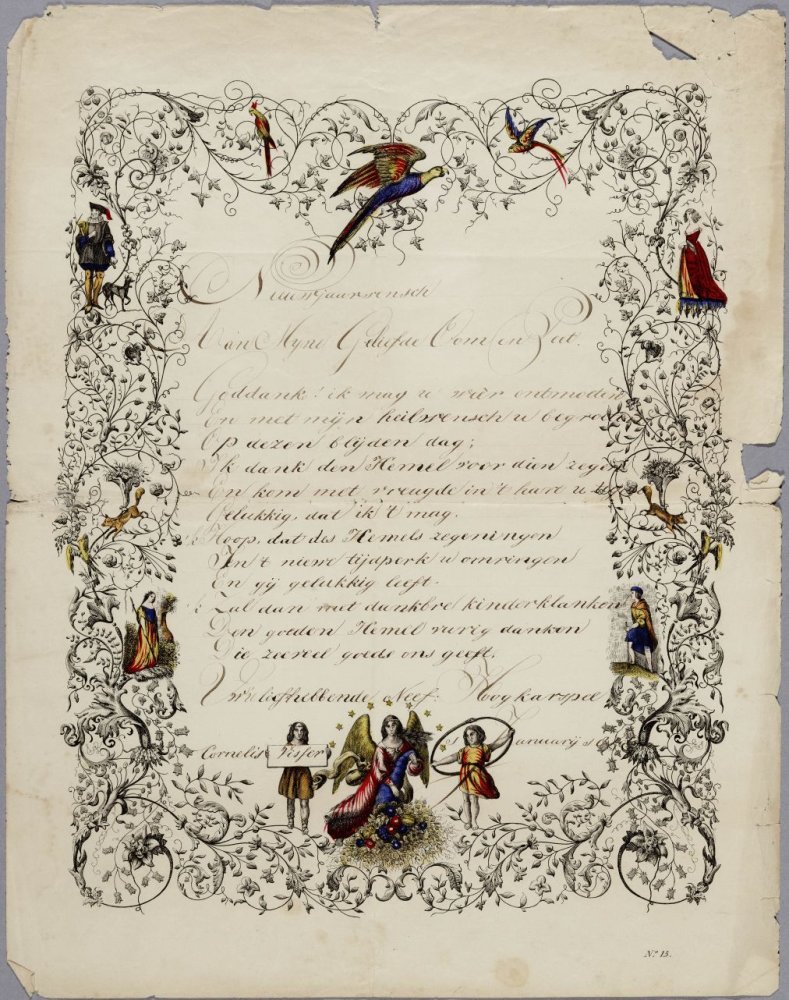 Nieuwjaarwensch
Van Myne Geliefde Oom en
Goddank! ik mag u wêr ontmoeten
En met mijn heilwensch u begroeten
Op dezen blijden dag;
Ik dank den Hemel voor dien zegen
En kom met vreugde in't hart u
Gelukkig, dat ik't mag.
'k Hoop, dat des Hemels zegeningen
In't niewe tijdperk u omringen
En gij gelukkig leeft.
'k Zal dan met dankbre kinderklanken
Den goeden Hemel vurig danken
Die zooveel goeds ons geeft.
Uw liefhebbende Neef: Hoogkarspel
Januarij
Cornelis Visser
No. 15.